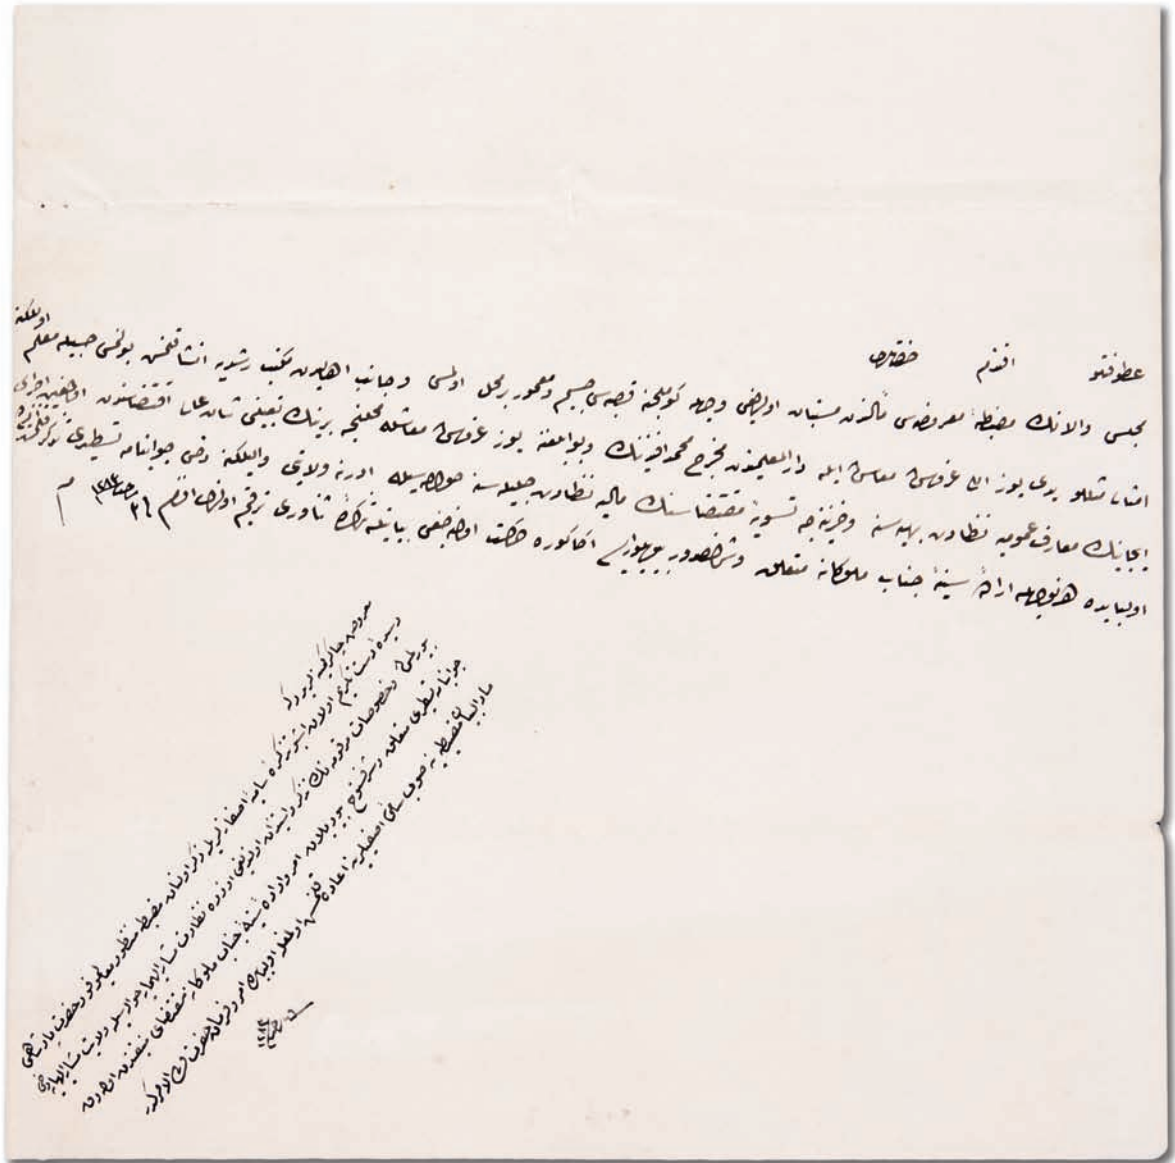 عطوفتلو افندم حضرتلری
مجلس والانك مضبطهٔ معروضه‌سی مآلندن مستبان اولدیغی وجهله كوملجنه قصبه‌سی جسیم ومعمور بر محل اولمسی وجانب اهالیدن مكتب رشدیه انشا قلنمش بولنمسی حسبیله معلم اولكه
امثاللو یدی یوز اللی غروش معاش ایله دار المعلمیندن مخرج محمد افندینك وبوابلغنه یوز غروش معاشله محلنجه برینك تعیینی شان عالی اقتضاسندن اولدیغندن اجرای
ایجابنك معارف عمومیه نظارت بهیه‌سنه وخزینه‌جه تسویهٔ مقتضاسنك مالیه نظارت جلیله‌سنه حواله‌سیله ادرنه ولایتی والیلكنه دخی جوابنامه تسطیری
اولبابده هر نوجهله ارادهٔ سنیهٔ جناب ملوكانه متعلق وشرفصدور بیوریلور ایسه اكا كوره حركت اولنه‌جغی بیانیله تذكرهٔ ثناوری ترقیم اولندی افندم
معروض چاكر كمینه‌لریدركه
رسیدهٔ دست تكریم اولان اشبو تذكرهٔ سامیهٔ آصفانه‌لریله ذكر اولنان مضبطه منظور معالیموفور حضرت پادشاهی
بیورلمش وخصوصات مرقومه‌نك تذكر واستیذان اولندیغی اوزره نظارت مشار الیهما حواله‌سیله ولایت مشار الیهایه دخی
جوابنامه تسطیری متعلق وشرفسنوح بیوریلان امر وارادهٔ سنیهٔ جناب ملوكانه مقتضای منیفندن اولدرق
مار البیان مضبطه ینه صوب سامئ آصفیلرینه اعاده قلنمش اولمغله اولبابده امر وفرمان حضرت ولی الامركدر